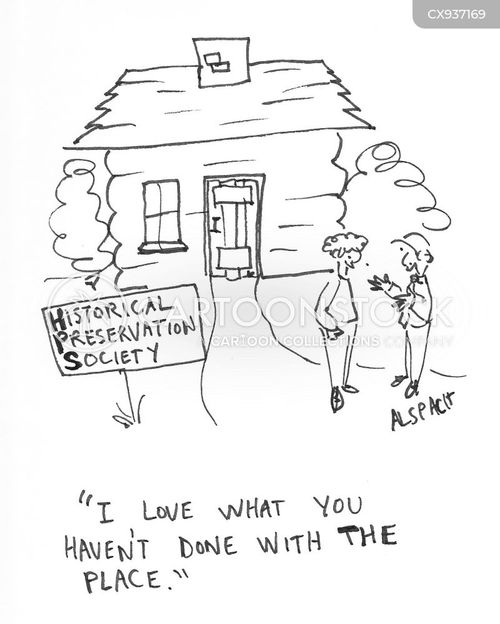 CX937169
HISTORICAL
PRESERVATION
SOCIETY
CARTOONSTOCK
CARTOON COLLECTIONS COMPANY
ALSPACH
"I LOVE WHAT YOU
HAVEN'T DONE WITH THE
PLACE."